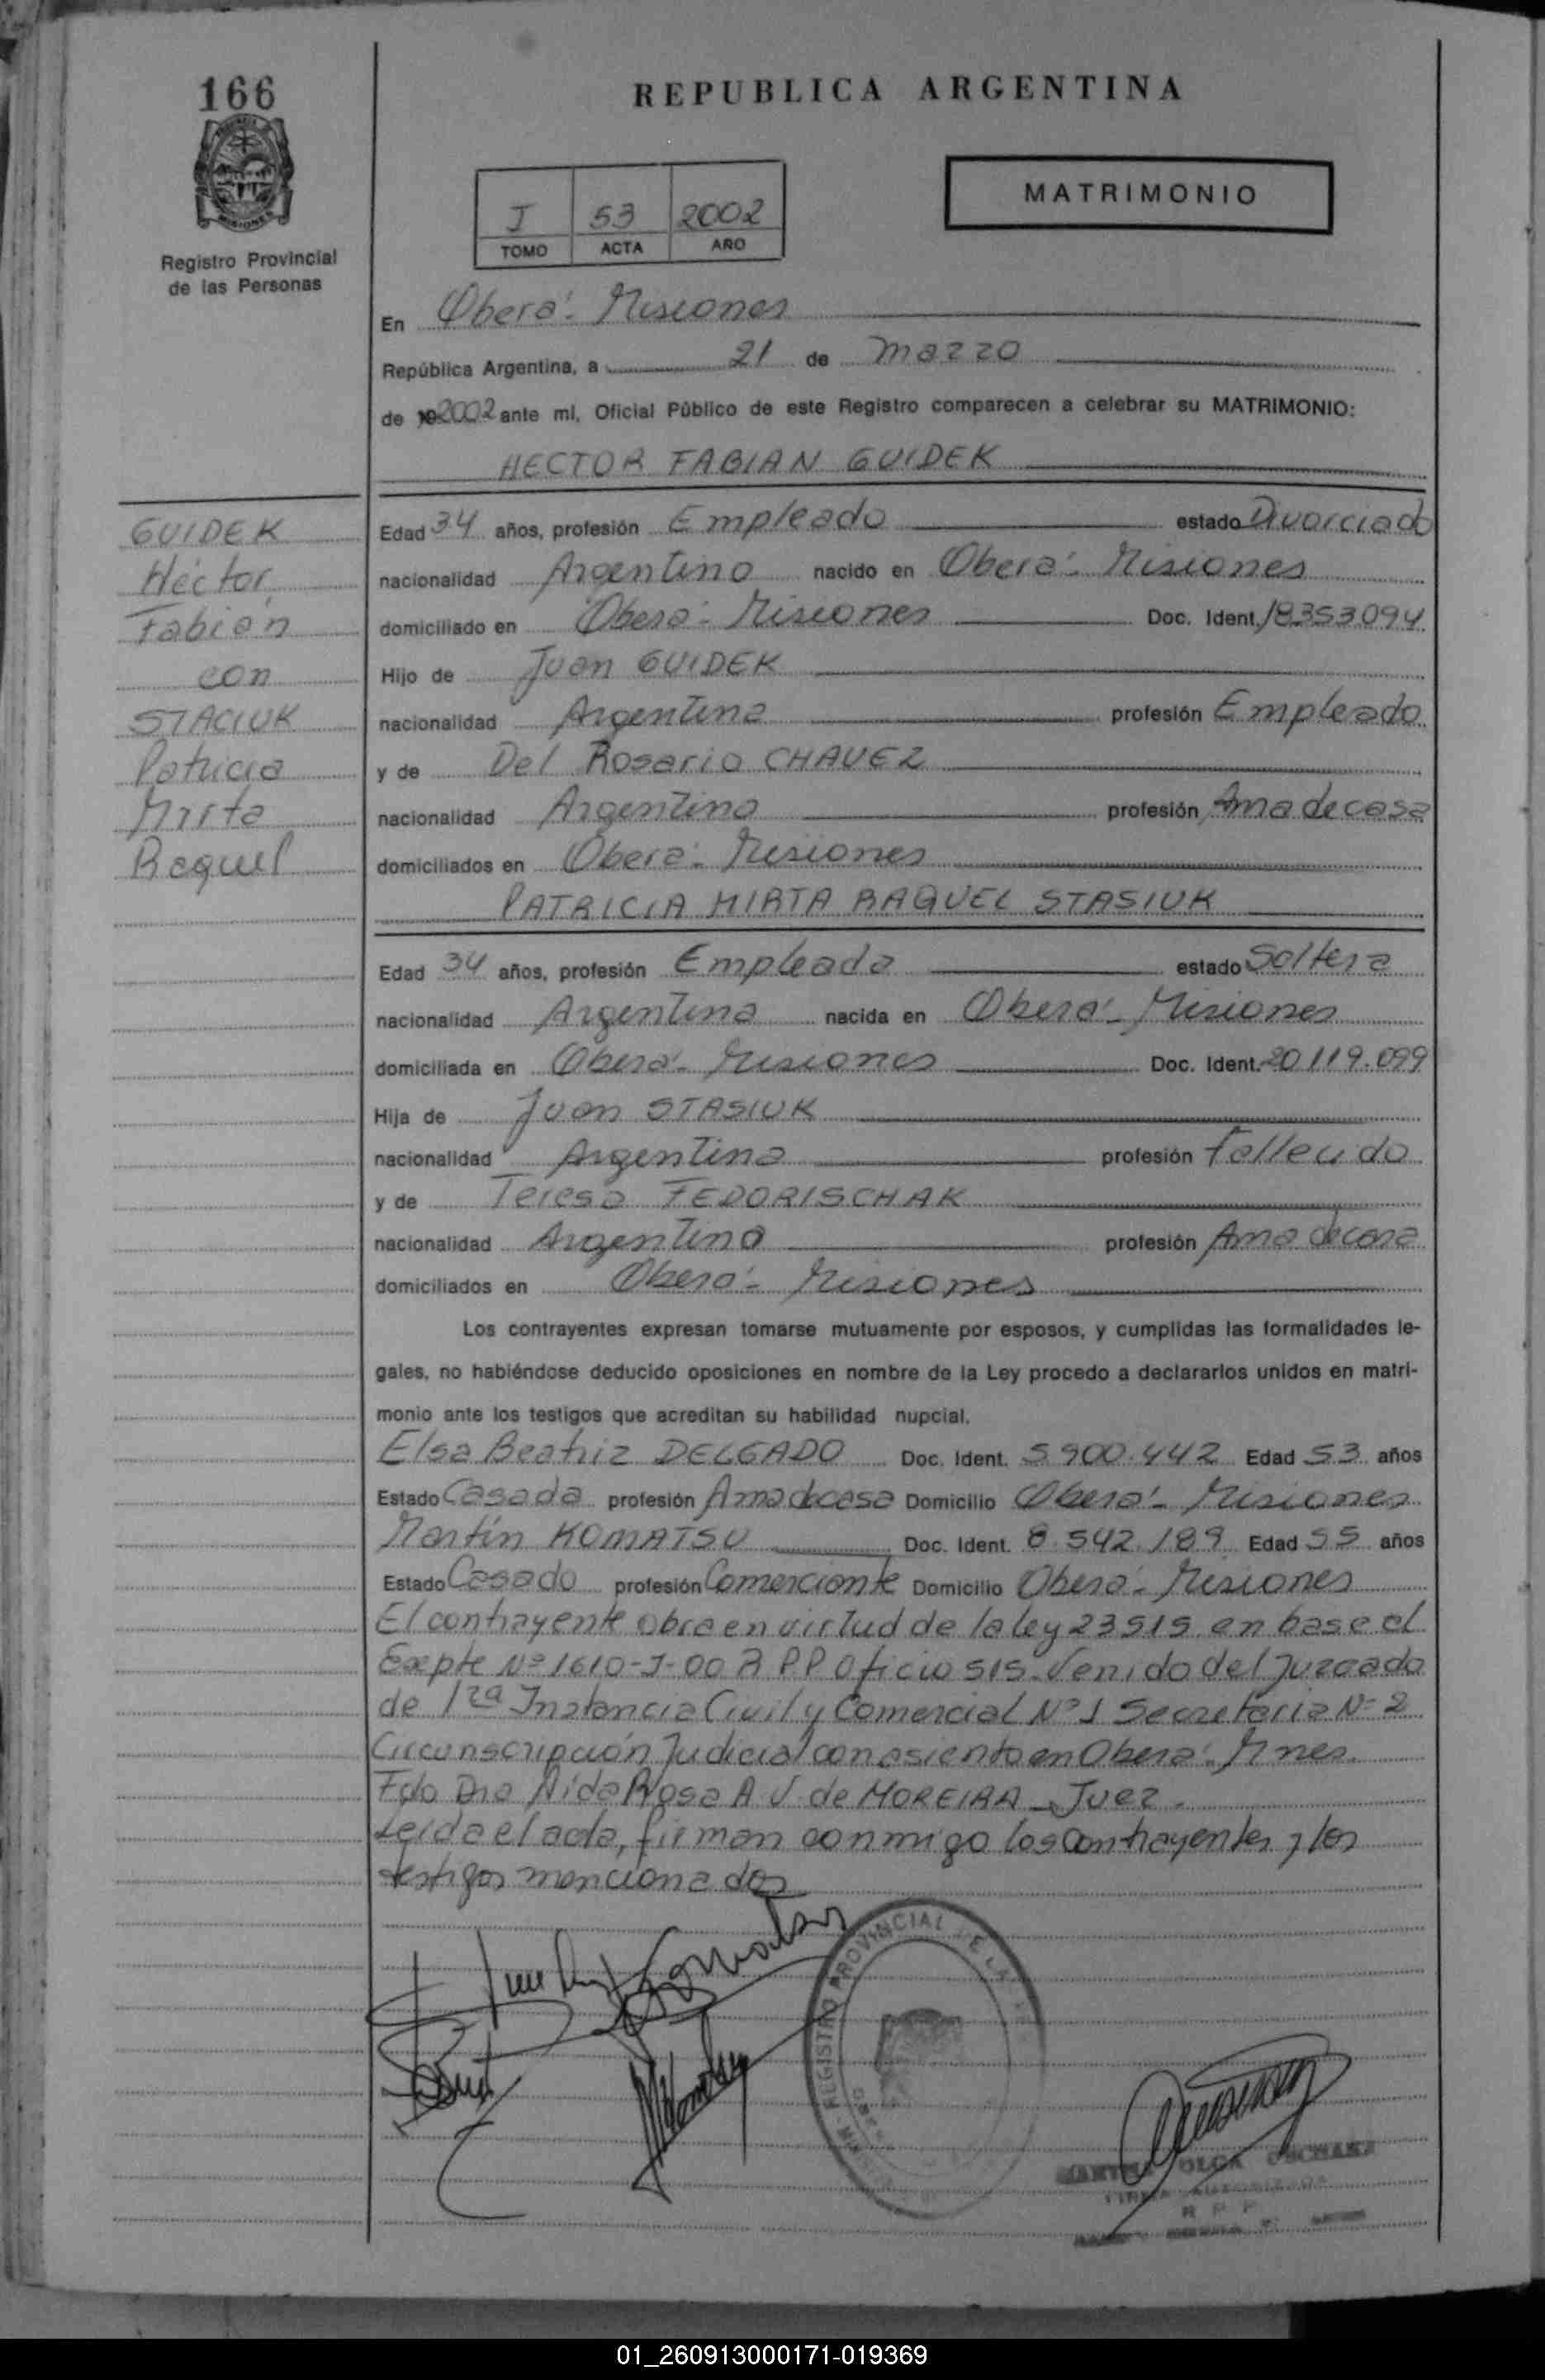 166
REPUBLICA ARGENTINA
Registro Provincial
de las Personas
I 53 2002
TOMO ACTA AÑO
MATRIMONIO
En Oberá - Misiones
República Argentina, a 21 de marzo
de 192002 ante mí, Oficial Público de este Registro comparecen a celebrar su MATRIMONIO:
HECTOR FABIAN GUIDEK
GUIDEK
Héctor
Fabián
con
STACIUK
Patricia
Mirta
Raquel
Edad 34 años, profesión Empleado estado Divorciado
nacionalidad Argentino nacido en Oberá - Misiones
domiciliado en Oberá - Misiones Doc. Ident. 18353.094
Hijo de Juan GUIDEK
nacionalidad Argentina profesión Empleado
y de Del Rosario CHAVEZ
nacionalidad Argentina profesión Ama de casa
domiciliados en Oberá - Misiones
PATRICIA MIRTA RAQUEL STASIUK
Edad 34 años, profesión Empleada estado Soltera
nacionalidad Argentina nacida en Oberá - Misiones
domiciliada en Oberá - Misiones Doc. Ident. 20.119.099
Hija de Juan STASIUK
nacionalidad Argentina profesión Fallecido
y de Teresa FEDORISCHAK
nacionalidad Argentina profesión Ama de casa
domiciliados en Oberá - Misiones
Los contrayentes expresan tomarse mutuamente por esposos, y cumplidas las formalidades le-
gales, no habiéndose deducido oposiciones en nombre de la Ley procedo a declararlos unidos en matri-
monio ante los testigos que acreditan su habilidad nupcial.
Elsa Beatriz DELGADO Doc. Ident. 5.900.442 Edad 53 años
Estado Casada profesión Ama de casa Domicilio Oberá - Misiones
Martín KOMATSU Doc. Ident. 8.542.189 Edad 55 años
Estado Casado profesión Comerciante Domicilio Oberá - Misiones
El contrayente obra en virtud de la ley 23515 en base al
Expte Nº 1610-J-00 R.P.P Oficio 515. Venido del Juzgado
de 1ra Instancia Civil y Comercial Nº 1 Secretaria Nº 2
Circunscripción Judicial con asiento en Oberá - Mnes.
Fdo Dra Aida Rosa A. V. de MOREIRA - Juez.
Leida el acta, firman conmigo los contrayentes y los
testigos mencionados
REGISTRO PROVINCIAL DE LA
OLGA
FIRMA AUTORIZADA
R P P
01_260913000171-019369